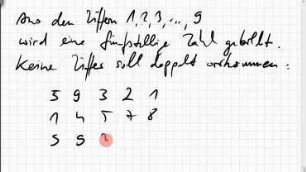 Aus den Ziffern 1,2,3,...,9
wird eine fünfstellige Zahl gebildet.
Keine Ziffer soll doppelt vorkommen:
5 9 3 2 1
1 4 5 7 8
5 9